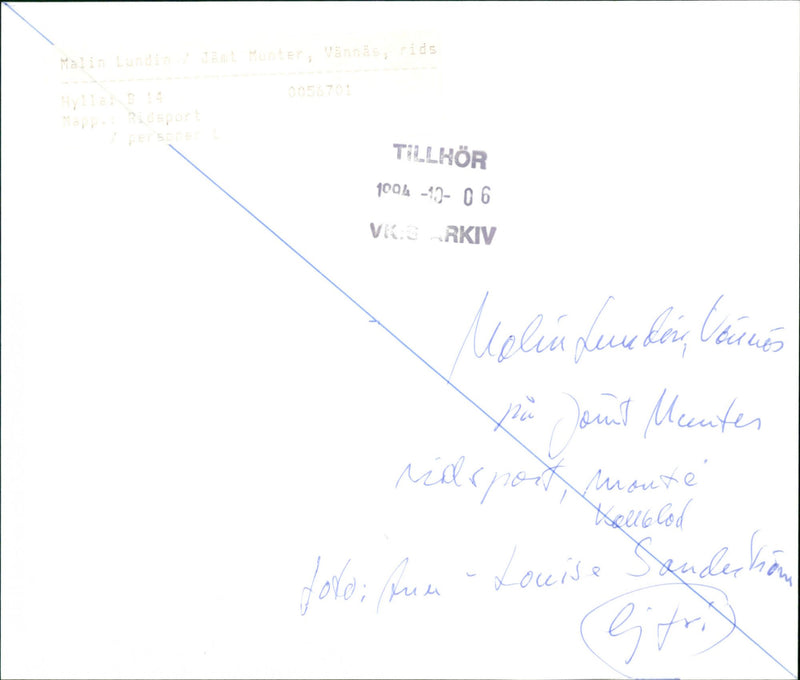 Malin Lundin / Jämt Munter, Vännäs, rids
Hylla: B 14 0056701
Mapp.: Ridsport
/ personer L
TILLHÖR
1994 -10- 06
VK:S ARKIV
Malin Lundin, Vännäs
på Jämt Munter
ridsport, monté
Kallblod
foto: Ann-Louise Sandström
Ej fri